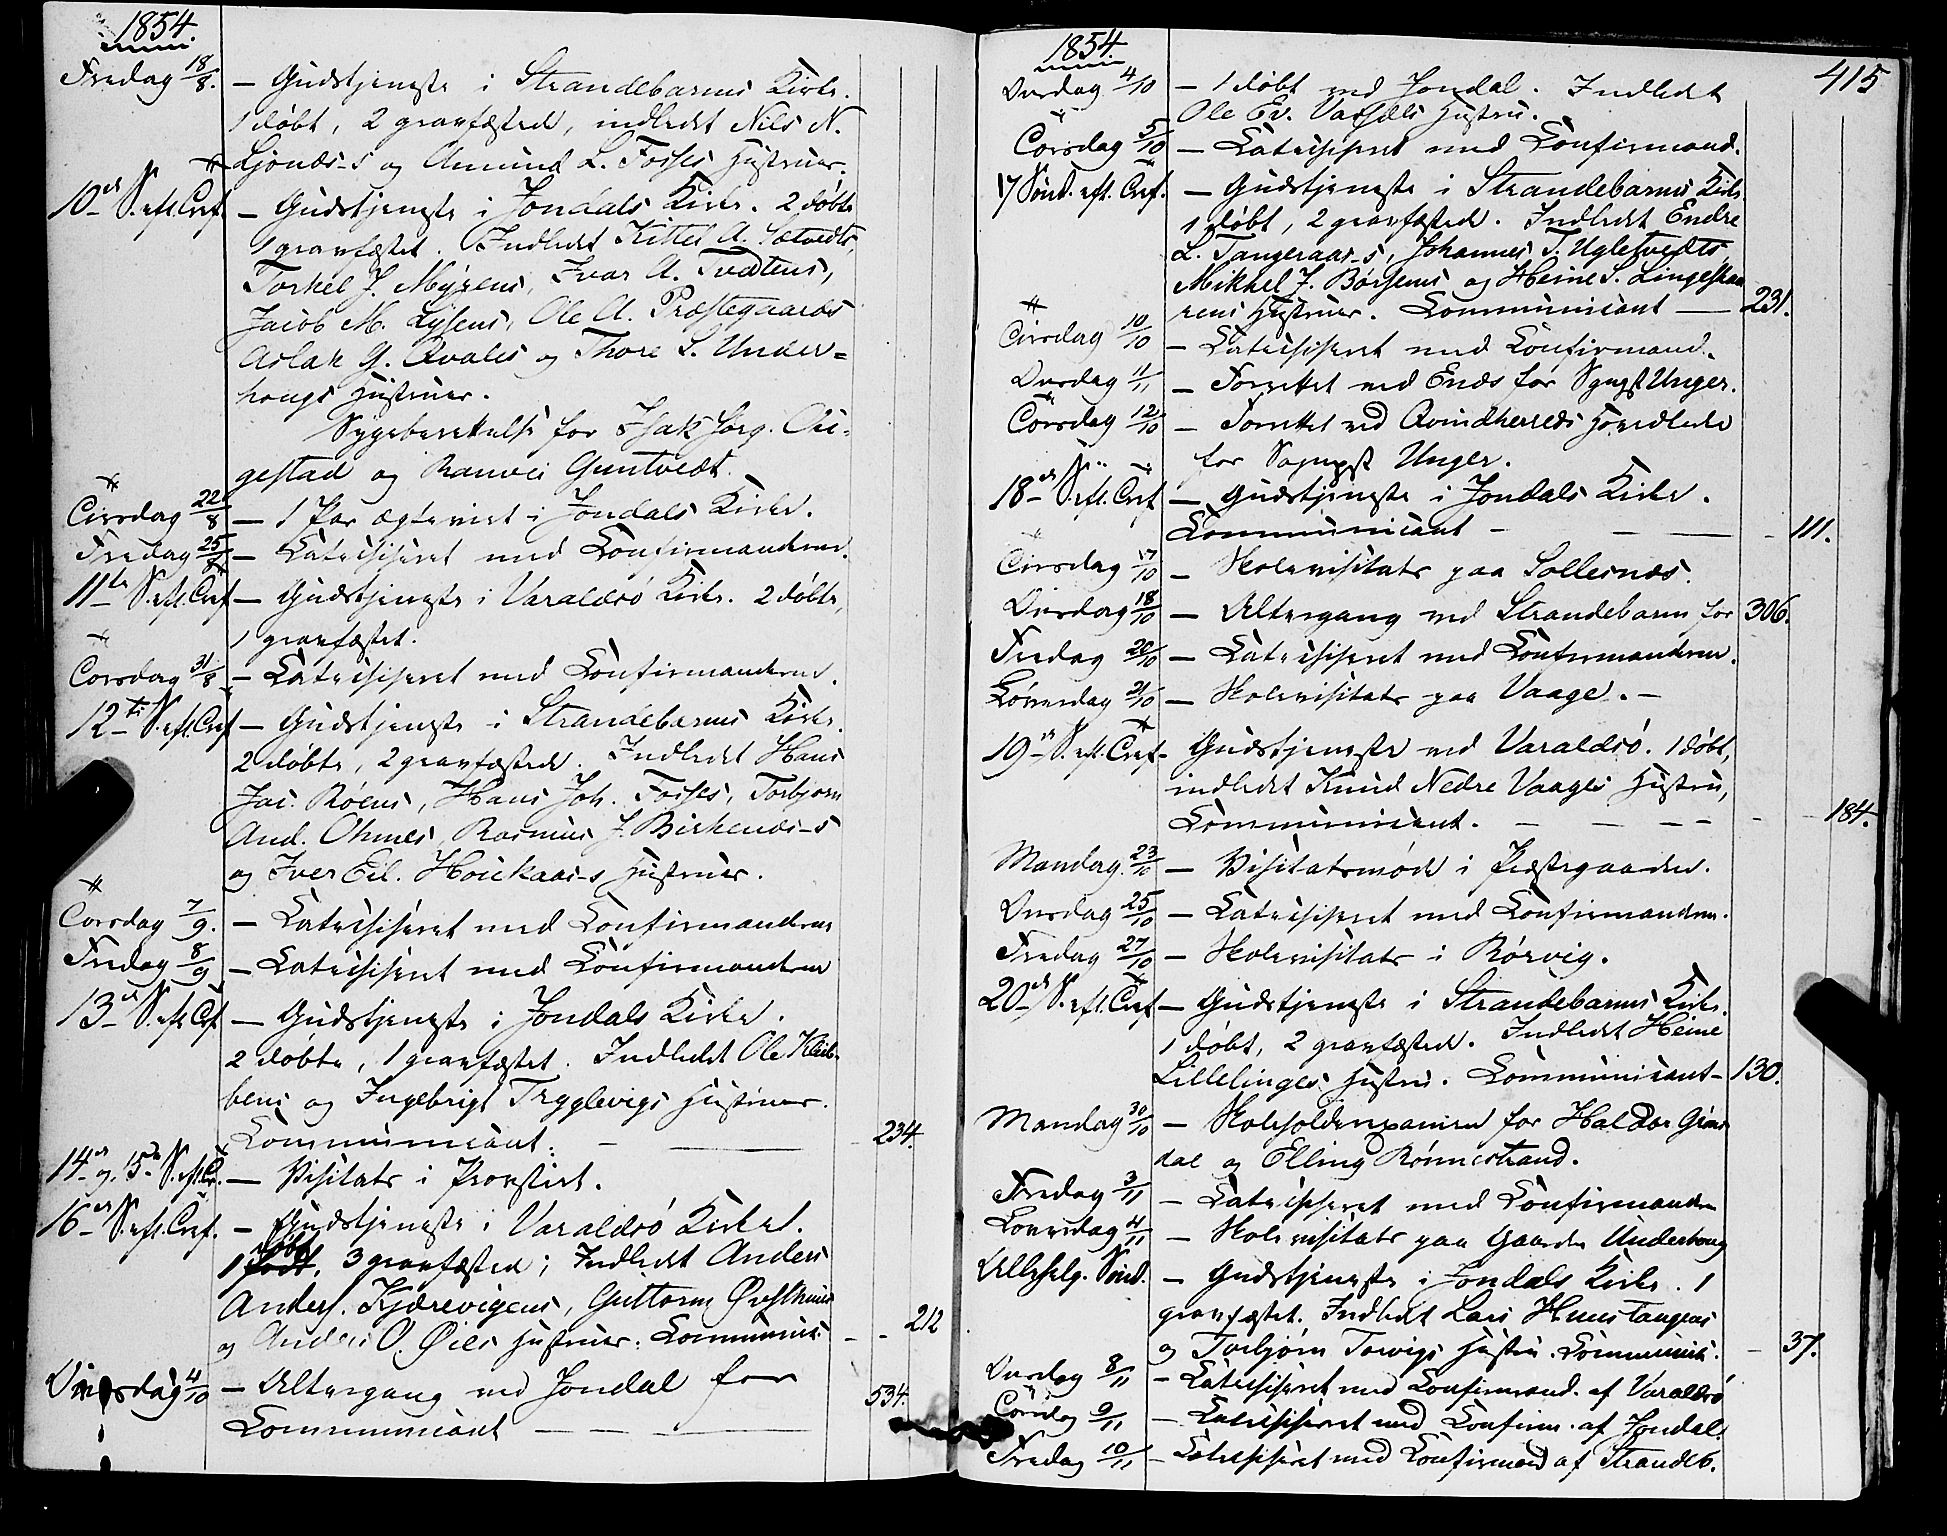 1854.
Fredag 18/8. — Gudstjeneste i Strandebarms Kirke.
1 døbt, 2 gravfæstede, indledet Nils N.
Ljonæs-s og Amund L. Fosses Hustruer.
10de S. eft. Tref. — Gudstjeneste i Jondals Kirke. 2 døbte
1 gravfæstet. Indledet Kittel A. Sætvedts,
Torkel J. Myrens, Ivar A. Tvætens,
Jacob M. Lysens, Ole A. Præstegaards
Aslak G. Qvales og Thore S. Under-
hougs Hustruer.
Sygeberettelse for Isak Jørg.
gestad og Ranvei Guntvedt.
Tirsdag 22/8 — 1 Par ægteviet i Jondals Kirke.
Fredag 25/8 — Catechiseret med Confirmanderne.
11te S. eft. Tref. — Gudstjeneste i Varaldsø Kirke. 2 døbte,
1 gravfæstet.
Torsdag 31/8 — Catechiseret med Confirmanderne.
12te S. eft. Tref. — Gudstjeneste i Strandebarms Kirke.
2 døbte, 2 gravfæstede. Indledet Hans
Jac. Røens, Hans Joh. Fosses, Torbjørn
And. Ohmes, Rasmus J. Birkenæs-s
og Iver Eil. Houkaas-s Hustruer.
Torsdag 7/9. — Catechiseret med Confirmanderne
Fredag 8/9 — Catechiseret med Confirmanderne
13de S. eft. Tref. — Gudstjeneste i Jondals Kirke.
2 døbte, 1 gravfæstet. Indledet Ole
bens og Ingebrigt Tryglevigs Hustruer.
Communicant. — — 234
14de og 15de S. eft. Tr. — Visitats i Provstiet.
16de S. eft. Tref. — Gudstjeneste i Varaldsø Kirke.
1 døbt, 3 gravfæstede; Indledet Anders
Anders. Kjærevigens, Guttorm
og Anders O. Øies Hustruer. Communic. - - 212
Onsdag 4/10 — Altergang ved Jondal for
Communicant — — — 534.
1854. 415
Onsdag 4/10 — 1 døbt ved Jondal. Indledet
Ole Ev. Hustru.
Torsdag 5/10 — Catechiseret med Confirmand.
17 Sønd. eft. Tref. — Gudstjeneste i Strandebarms Kirke
1 døbt, 2 gravfæstede. Indledet Endre
L. Tangeraas-s, Johannes T. Ugletvedts,
Mikkel J. Børsems og Heine S. Lingeskaa-
rens Hustruer. Communicant — 231.
Tirsdag 10/10 — Catechiseret med Confirmand.
Onsdag 11/11 — Forrettet ved Enæs for Sognepr. Unger.
Torsdag 12/10 — Forrettet ved Qvindherreds Hovedkirke
for Sognepr. Unger.
18de S. eft. Tref. — Gudstjeneste i Jondals Kirke.
Communicant — — — - 111.
Tirsdag 17/10 — Skolevisitats paa Sollesnæs.
Onsdag 18/10 — Altergang ved Strandebarm for 306.
Fredag 20/10 — Catechiseret med Confirmanderne.
Løverdag 21/10 — Skolevisitats paa Vaage. —
19de S. eft. Tref. - Gudstjeneste ved Varaldsø. 1 døbt,
indledet Knud Nedre Vaages Hustru,
Communicant. — — — - - 184.
Mandag 23/10 — Visitatsmøde i Præstegaarden.
Onsdag 25/10 — Catechiseret med Confirmanderne.
Fredag 27/10 — Skolevisitats i Rørvig.
20de S. eft. Tref. — Gudstjeneste i Strandebarms Kirke.
1 døbt, 2 gravfæstede. Indledet Heine
Lillelinges Hustru. Communicant — 130.
Mandag 30/10 — Skoleholderexamen for Haldor
dal og Elling Rønnestrand.
Fredag 3/11 — Catechiseret med Confirmanderne
Løverdag 4/11 — Skolevisitats paa Gaarden Underhoug
Allehelg. Sønd. — Gudstjeneste i Jondals Kirke. 1
gravfæstet. Indledet Lars
og Torbjørn Torvigs Hustru. Communic. — 37.
Onsdag 8/11 — Catechiseret med Confirmand. af Varaldsø
Torsdag 9/11 — Catechiseret med Confirm. af Jondal.
Fredag 10/11 — Catechiseret med Confirmand af Strandeb.